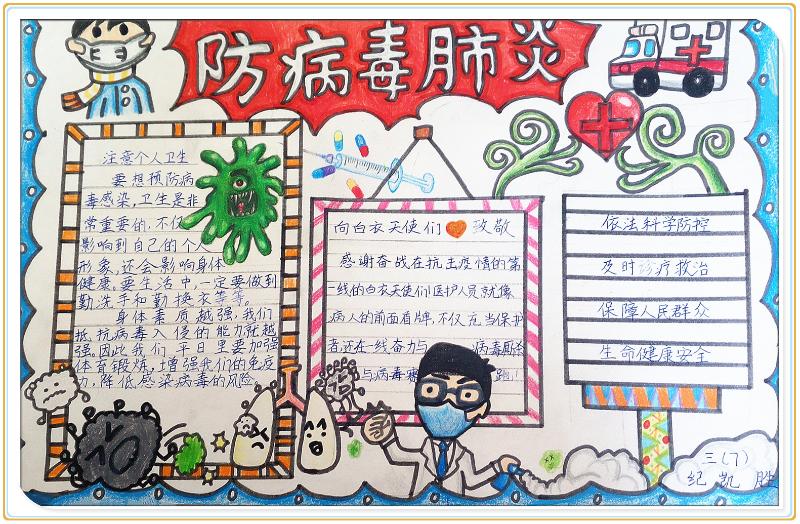 防病毒肺炎
注意个人卫生
要想预防病
毒感染,卫生是非
常重要的,不仅
影响到自己的个人
形象,还会影响身体
健康。要生活中,一定要做到
勤洗手和勤换衣等等。
身体素质越强,我们
抵抗病毒入侵的能力就越
强。因此我们平日里要加强
体育锻炼,增强我们的免疫
力,降低感染病毒的风险
向白衣天使们 致敬
感谢奋战在抗击疫情的第
一线的白衣天使们!医护人员就像
病人的前面盾牌,不仅充当保护
者还在一线奋力与 病毒厮杀
与病毒赛 跑!
依法科学防控
及时诊疗救治
保障人民群众
生命健康安全
三(7)
纪凯胜